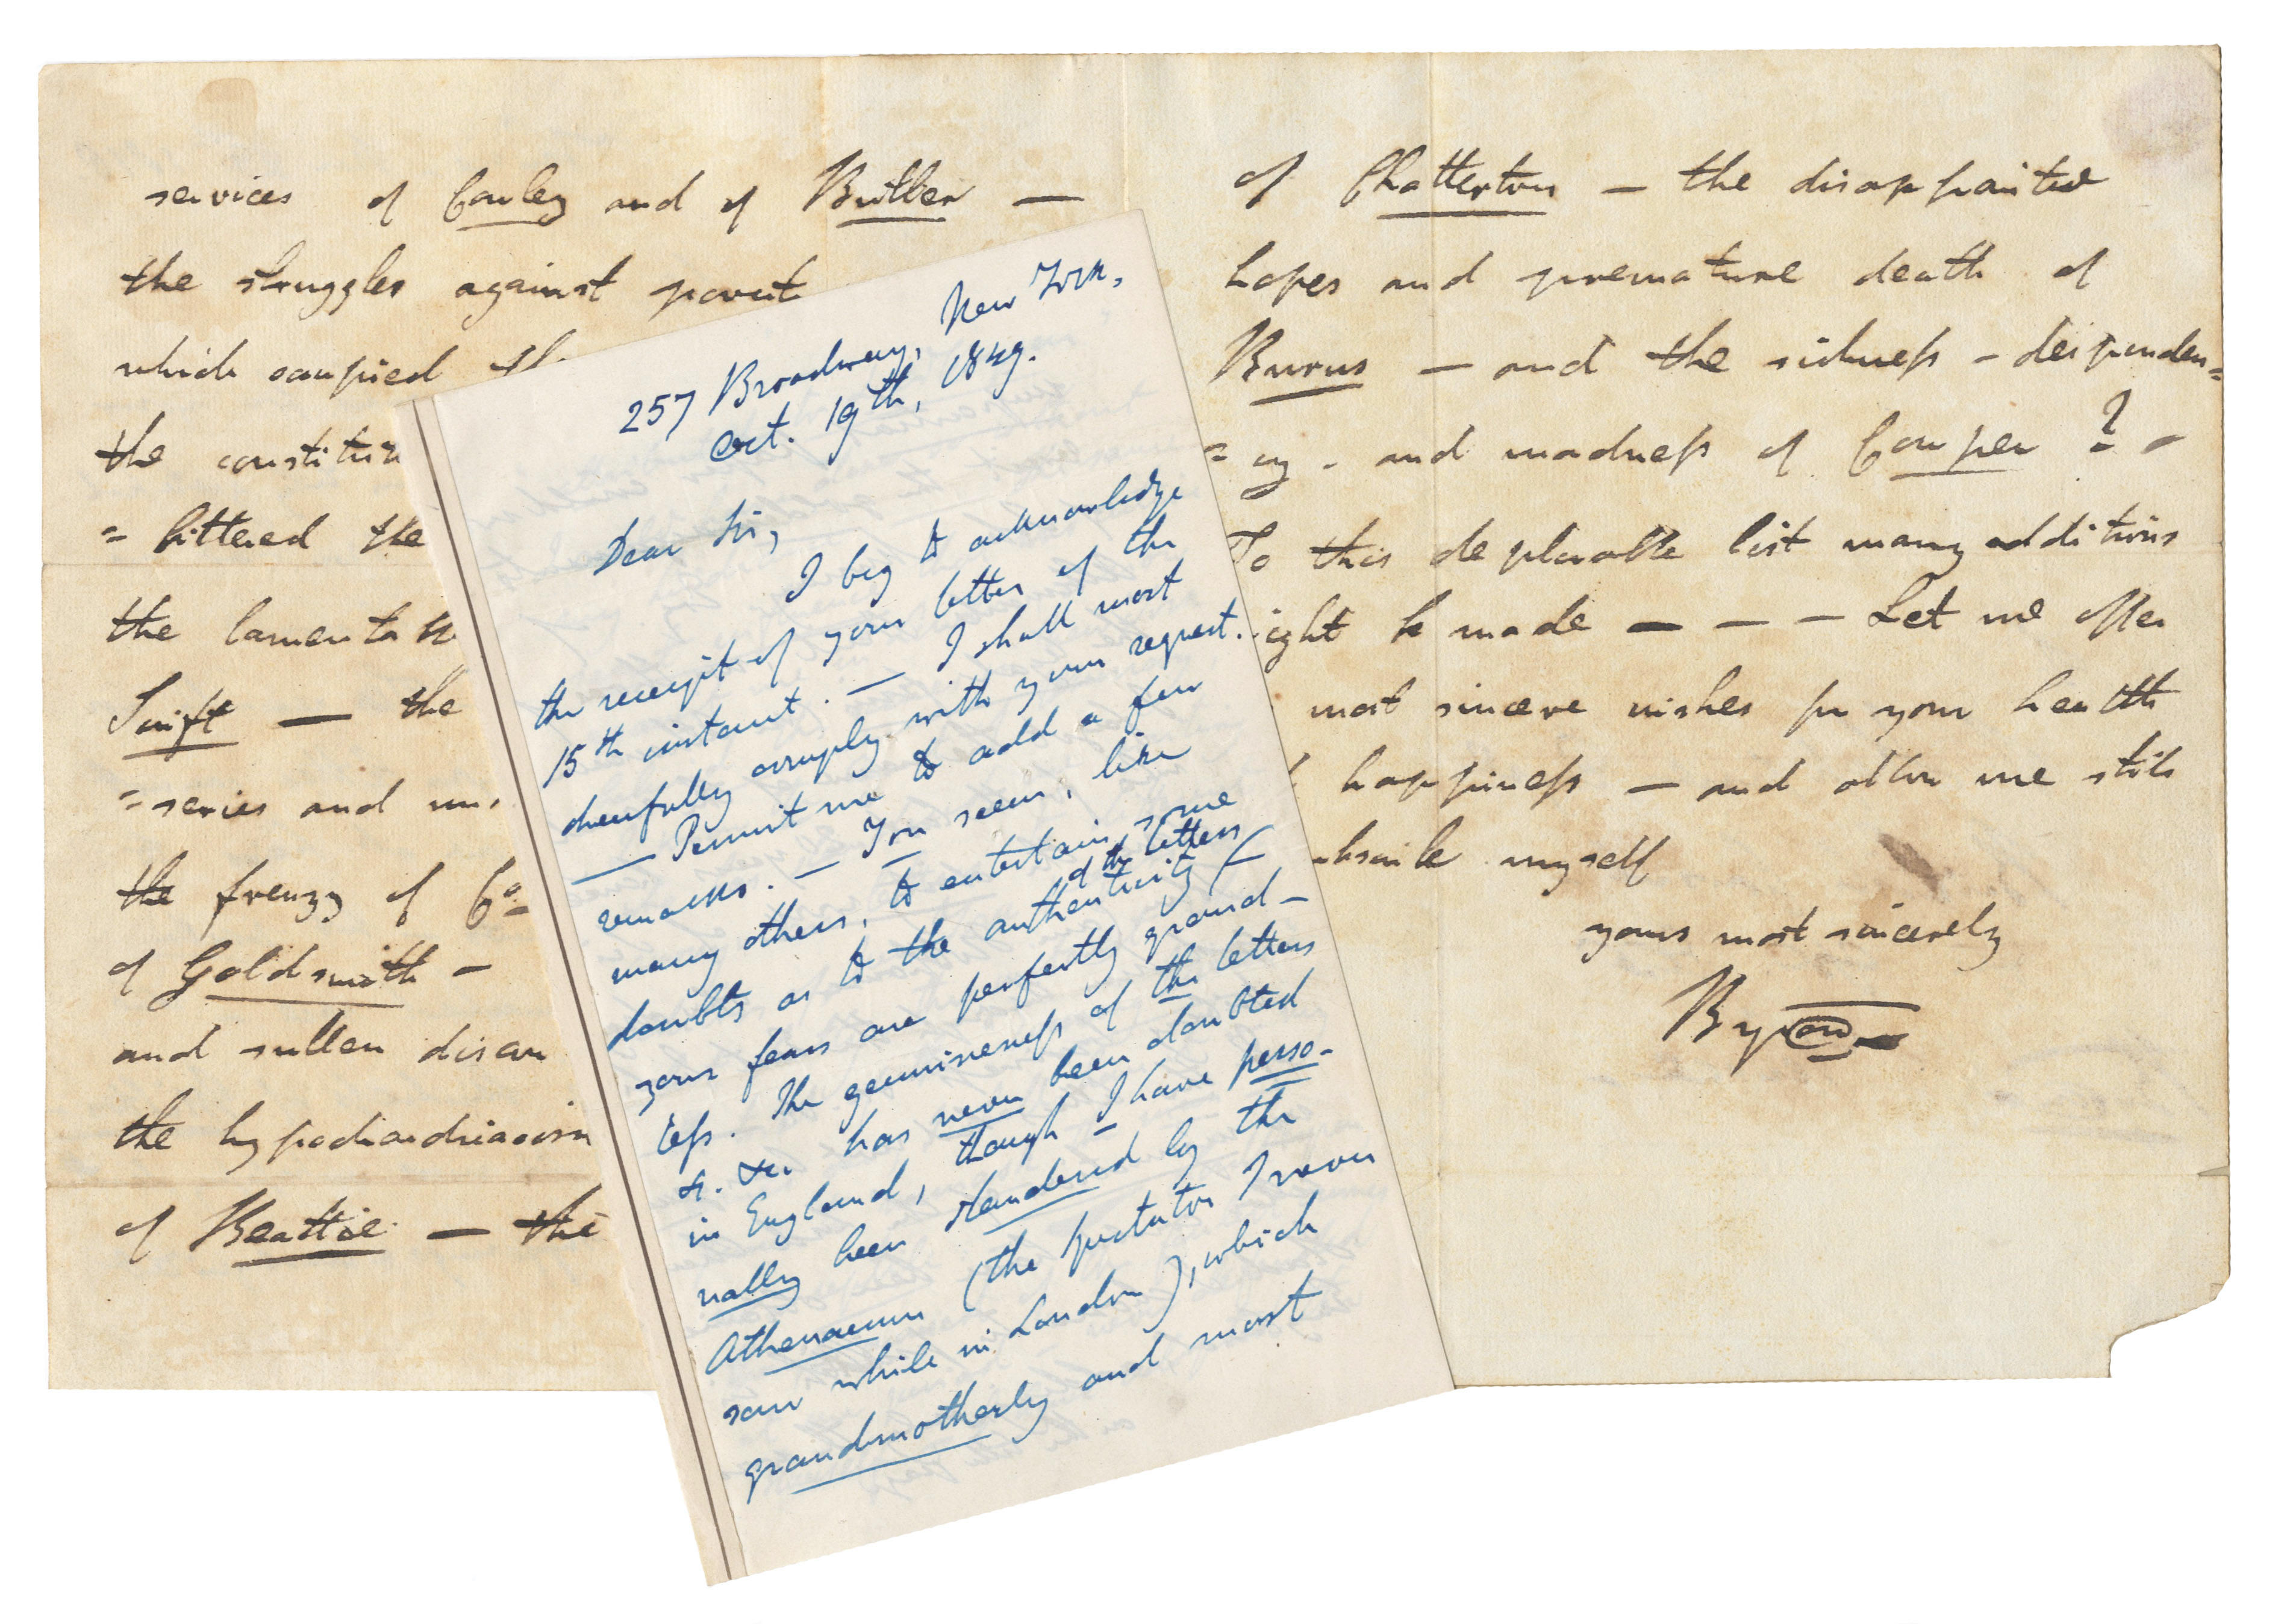 services of Cowley and of Butler —
the struggles against povert
which occupied th
the constitu
= bittered the
the lamenta
Swift — the
= series and
the frenzy of Co
of Goldsmith —
and sullen
the hypochondriacism
of Beattie — the
257 Broadway, New York,
Oct. 19th, 1849.
Dear Sir,
I beg to acknowledge
the receipt of your letter of the
15th instant. — I shall most
cheerfully comply with your request.
— Permit me to add a few
remarks. — You seem, like
many others, to entertain some
doubts as to the authenticity of the letters
your fears are perfectly ground-
less. The genuineness of the letters
&. &c. has never been doubted
in England, though I have perso-
nally been slandered by the
Athenaeum (the Spectator I never
saw while in London), which
grandmotherly and most
of Chatterton — the disappointed
hopes and premature death of
Burns — and the sickness - desponden=
= cy - and madness of Cowper ? -
To this deplorable list many additions
ight be made — — — Let me offer
most sincere wishes for your health
happiness — and allow me still
ubscribe myself
yours most sincerely
Byron